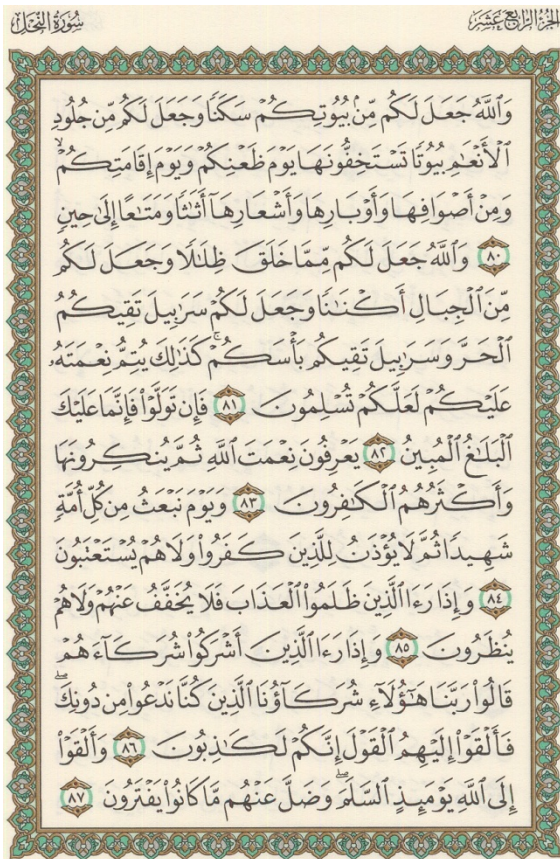 الجزء الرابع عشر
سورة النحل
وَٱللَّهُ جَعَلَ لَكُم مِّنۢ بُيُوتِكُمْ سَكَنًا وَجَعَلَ لَكُم مِّن جُلُودِ
ٱلْأَنْعَٰمِ بُيُوتًا تَسْتَخِفُّونَهَا يَوْمَ ظَعْنِكُمْ وَيَوْمَ إِقَامَتِكُمْ ۙ
وَمِنْ أَصْوَافِهَا وَأَوْبَارِهَا وَأَشْعَارِهَآ أَثَٰثًا وَمَتَٰعًا إِلَىٰ حِينٍ
٨٠ وَٱللَّهُ جَعَلَ لَكُم مِّمَّا خَلَقَ ظِلَٰلًا وَجَعَلَ لَكُم
مِّنَ ٱلْجِبَالِ أَكْنَٰنًا وَجَعَلَ لَكُمْ سَرَٰبِيلَ تَقِيكُمُ
ٱلْحَرَّ وَسَرَٰبِيلَ تَقِيكُم بَأْسَكُمْ ۚ كَذَٰلِكَ يُتِمُّ نِعْمَتَهُۥ
عَلَيْكُمْ لَعَلَّكُمْ تُسْلِمُونَ ٨١ فَإِن تَوَلَّوْا۟ فَإِنَّمَا عَلَيْكَ
ٱلْبَلَٰغُ ٱلْمُبِينُ ٨٢ يَعْرِفُونَ نِعْمَتَ ٱللَّهِ ثُمَّ يُنكِرُونَهَا
وَأَكْثَرُهُمُ ٱلْكَٰفِرُونَ ٨٣ وَيَوْمَ نَبْعَثُ مِن كُلِّ أُمَّةٍ
شَهِيدًا ثُمَّ لَا يُؤْذَنُ لِلَّذِينَ كَفَرُوا۟ وَلَا هُمْ يُسْتَعْتَبُونَ
٨٤ وَإِذَا رَءَا ٱلَّذِينَ ظَلَمُوا۟ ٱلْعَذَابَ فَلَا يُخَفَّفُ عَنْهُمْ وَلَا هُمْ
يُنظَرُونَ ٨٥ وَإِذَا رَءَا ٱلَّذِينَ أَشْرَكُوا۟ شُرَكَآءَهُمْ
قَالُوا۟ رَبَّنَا هَٰٓؤُلَآءِ شُرَكَآؤُنَا ٱلَّذِينَ كُنَّا نَدْعُوا۟ مِن دُونِكَ ۖ
فَأَلْقَوْا۟ إِلَيْهِمُ ٱلْقَوْلَ إِنَّكُمْ لَكَٰذِبُونَ ٨٦ وَأَلْقَوْا۟
إِلَى ٱللَّهِ يَوْمَئِذٍ ٱلسَّلَمَ ۖ وَضَلَّ عَنْهُم مَّا كَانُوا۟ يَفْتَرُونَ ٨٧